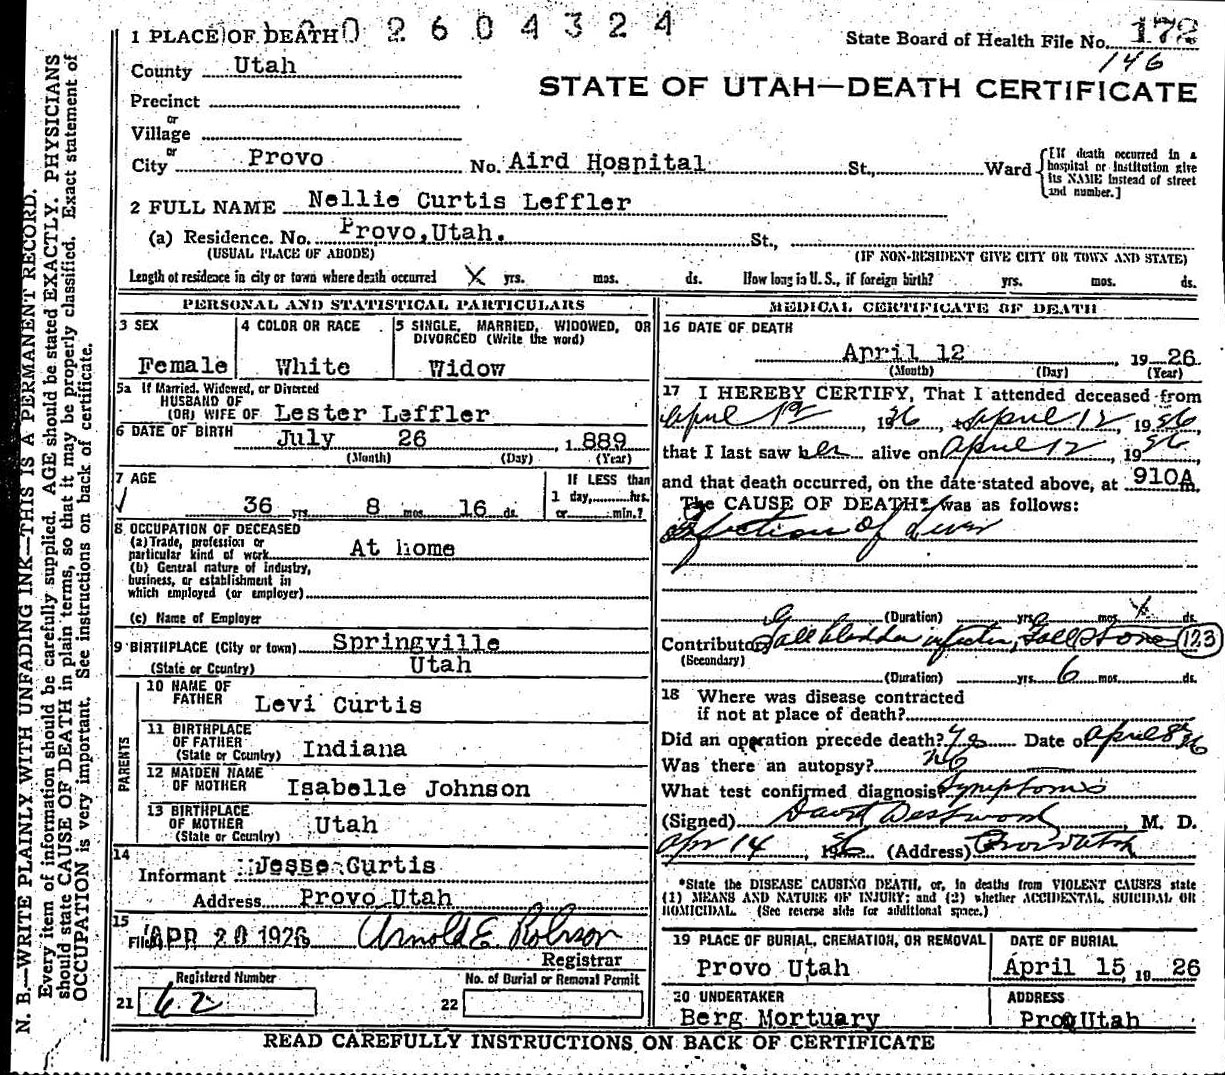 N. B.—WRITE PLAINLY WITH UNFADING INK—THIS IS A PERMANENT RECORD.
Every item of information should be carefully supplied. AGE should be stated EXACTLY. PHYSICIANS
should state CAUSE OF DEATH in plain terms, so that it may be properly classified. Exact statement of
OCCUPATION is very important. See instructions on back of certificate.
02604324
1 PLACE OF DEATH
State Board of Health File No. 172
146
County Utah
STATE OF UTAH—DEATH CERTIFICATE
Precinct
or
Village
or
City Provo No. Aird Hospital St., Ward
[If death occurred in a
hospital or institution give
its NAME instead of street
and number.]
2 FULL NAME Nellie Curtis Leffler
(a) Residence. No. Provo, Utah. St.,
(USUAL PLACE OF ABODE) (IF NON-RESIDENT GIVE CITY OR TOWN AND STATE)
Length of residence in city or town where death occurred X yrs. mos. ds. How long in U. S., if foreign birth? yrs. mos. ds.
PERSONAL AND STATISTICAL PARTICULARS
3 SEX
Female
4 COLOR OR RACE
White
5 SINGLE, MARRIED, WIDOWED, OR
DIVORCED (Write the word)
Widow
5a If Married, Widowed, or Divorced
HUSBAND OF
(OR) WIFE OF Lester Leffler
6 DATE OF BIRTH July 26 1889
(Month) (Day) (Year)
7 AGE
36 yrs. 8 mos. 16 ds.
If LESS than
1 day, hrs.
or min.?
8 OCCUPATION OF DECEASED
(a) Trade, profession or
particular kind of work At home
(b) General nature of industry,
business, or establishment in
which employed (or employer)
(c) Name of Employer
9 BIRTHPLACE (City or town) Springville
(State or Country) Utah
PARENTS
10 NAME OF
FATHER Levi Curtis
11 BIRTHPLACE
OF FATHER
(State or Country) Indiana
12 MAIDEN NAME
OF MOTHER Isabelle Johnson
13 BIRTHPLACE
OF MOTHER
(State or Country) Utah
14
Informant Jesse Curtis
Address Provo Utah
15
Filed APR 20 1926 Arnold E. Robison
Registrar
Registered Number
21 62
No. of Burial or Removal Permit
22
MEDICAL CERTIFICATE OF DEATH
16 DATE OF DEATH
April 12 1926
(Month) (Day) (Year)
17 I HEREBY CERTIFY, That I attended deceased from
April 1st, 1926, to April 12, 1926,
that I last saw her alive on April 12, 1926,
and that death occurred, on the date stated above, at 910A m.
The CAUSE OF DEATH* was as follows:
Infection of Liver
(Duration) yrs. mos. ds.
Contributory Gall bladder infection, Gall Stones 123
(Secondary)
(Duration) yrs. 6 mos. ds.
18 Where was disease contracted
if not at place of death?
Did an operation precede death? Yes Date of April 8th 26
Was there an autopsy? No
What test confirmed diagnosis? Symptoms
(Signed) David Westwood, M. D.
Apr 14, 1926 (Address) Provo Utah
*State the DISEASE CAUSING DEATH, or, in deaths from VIOLENT CAUSES state
(1) MEANS AND NATURE OF INJURY; and (2) whether ACCIDENTAL, SUICIDAL OR
HOMICIDAL. (See reverse side for additional space.)
19 PLACE OF BURIAL, CREMATION, OR REMOVAL
Provo Utah
DATE OF BURIAL
April 15, 1926
20 UNDERTAKER
Berg Mortuary
ADDRESS
Provo Utah
READ CAREFULLY INSTRUCTIONS ON BACK OF CERTIFICATE